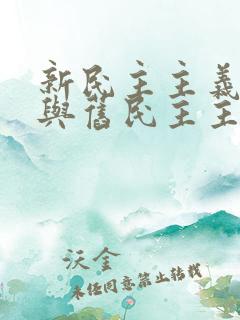 新民主主義
與舊民主主
沃金
未經同意禁止轉載